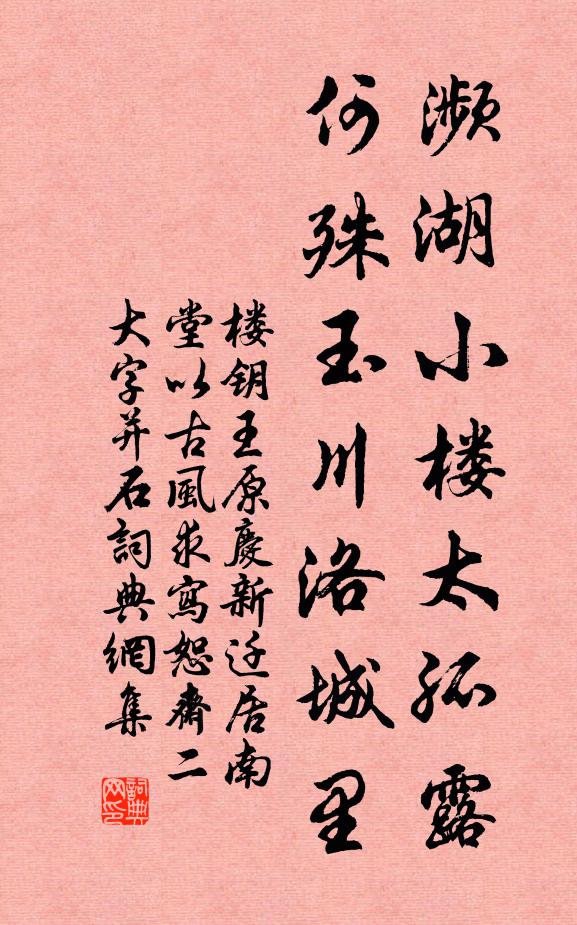 濒湖小楼太孤露
何殊玉川洛城里
楼钥王原慶新迁居南
堂以古風求寫恕齋二
大字并石詞典網集
詞典网印